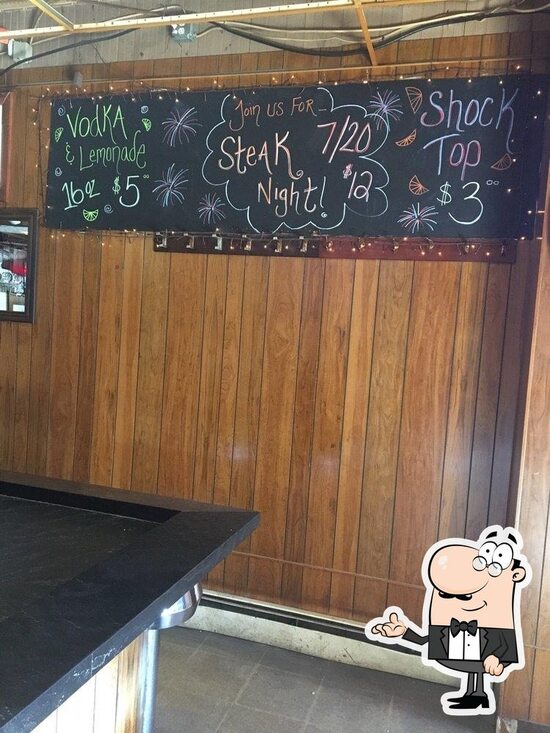 Vodka
& Lemonade
16oz $5⁰⁰
Join us For
Steak
Night!
7/20
$12
Shock
Top
$3⁰⁰